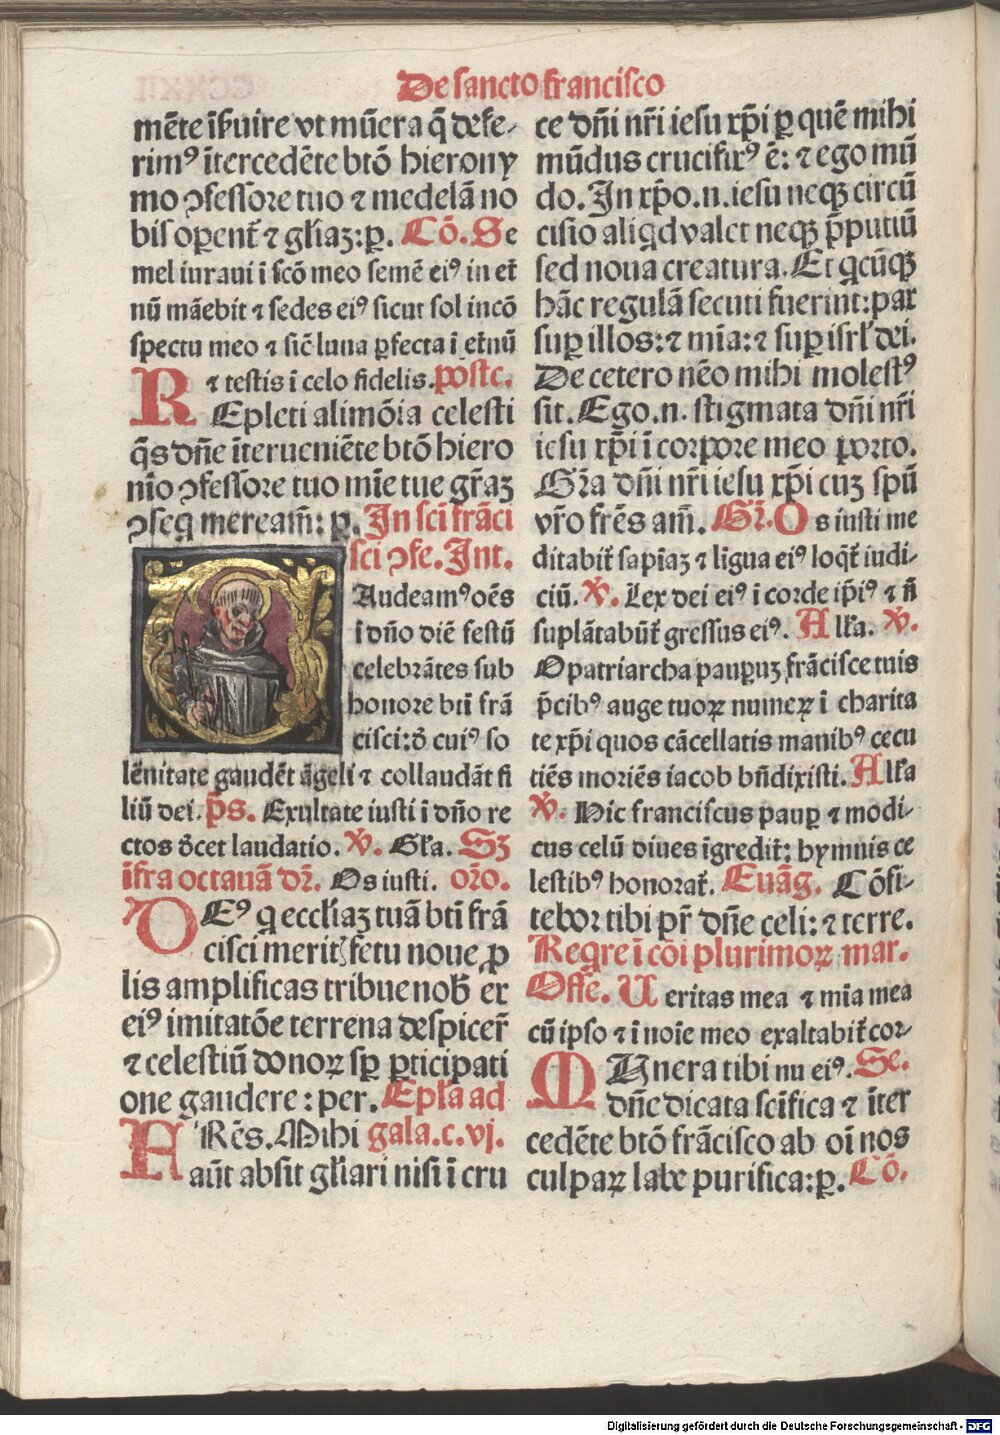 De sancto francisco
mēte īſtruire vt mūera q̄ defe-
rimꝰ ītercedēte btō hierony
mo ꝯfeſſore tuo ⁊ medelā no
bis oꝑent̄ ⁊ gl̄iaꝫ: ꝑ. Cō. Se
mel iuraui ī ſcō meo ſemē eiꝰ in et̄
nū māebit ⁊ ſedes eiꝰ ſicut ſol incō
ſpectu meo ⁊ ſic̄ luna ꝑfecta ī et̄nū
⁊ teſtis ī celo fidelis. poſtc.
REpleti alimōia celeſti
q̄s dn̄e īterueniēte btō hiero
nīo ꝯfeſſore tuo mīe tue gr̄aꝫ
ꝯſeq meream̄: ꝑ. In ſcī frāci
ſci ꝯfe. Int.
GAudeamꝰ oēs
ī dn̄o diē feſtū
celebrātes ſub
honore bti frā
ciſci: ð cuiꝰ ſo
lēnitate gaudēt āgeli ⁊ collaudāt fi
liū dei. p̄s. Exultate iuſti ī dn̄o re
ctos ðcet laudatio. v̄. Gl̄a. Sꝫ
īfra octauā dr̄. Os iuſti. oro.
DEꝰ q eccl̄iaꝫ tuā bti frā
ciſci merit̄ fetu noue ꝓ
lis amplificas tribue nob̄ ex
eiꝰ imitatōe terrena deſpicer̄
⁊ celeſtiū donoꝝ ſꝑ ꝑticipati
one gaudere: per. Epl̄a ad
FRēs. Mihi gala. c. vj.
aūt abſit gl̄iari niſi ī cru
ce dn̄i nr̄i ieſu xp̄i ꝑ quē mihi
mūdus crucifixꝰ ē: ⁊ ego mū
do. In xp̄o. n. ieſu neqꝫ circū
ciſio aliqd valet neqꝫ p̄putiū
ſed noua creatura. Et qcūqꝫ
hāc regulā ſecuti fuerint: pax
ſuꝑ illos: ⁊ mīa: ⁊ ſuꝑ iſrl̄ dei.
De cetero nēo mihi moleſtꝰ
ſit. Ego. n. ſtigmata dn̄i nr̄i
ieſu xp̄i ī corpore meo porto.
Gr̄a dn̄i nr̄i ieſu xp̄i cuꝫ ſpū
vr̄o fr̄ēs am̄. Gr̄. Os iuſti me
ditabit̄ ſapīaꝫ ⁊ ligua eiꝰ loqt̄ iudi-
ciū. v̄. Lex dei eiꝰ ī corde ip̄iꝰ ⁊ n̄
ſuplātabūt̄ greſſus eiꝰ. All̄a. v̄.
O patriarcha pauꝑuꝫ frāciſce tuis
p̄cibꝰ auge tuoꝝ numeꝝ ī charita
te xp̄i quos cācellatis manibꝰ cecu
tiēs moriēs iacob bn̄dixiſti. All̄a
v̄. Hic franciſcus pauꝑ ⁊ modi-
cus celū diues īgredit̄: hymnis ce
leſtibꝰ honorat̄. Euāg. Cōfi-
tebor tibi pr̄ dn̄e celi: ⁊ terre.
Reqre ī cōi plurimoꝝ mar.
Offe. Ueritas mea ⁊ mīa mea
cū ipſo ⁊ ī noīe meo exaltabit̄ cor-
nu eiꝰ. Se.
MUnera tibi
dn̄e dicata ſcīfica ⁊ īter
cedēte btō frāciſco ab oī nos
culpaꝝ labe purifica: ꝑ. Cō.
Digitalisierung gefördert durch die Deutsche Forschungsgemeinschaft - DFG